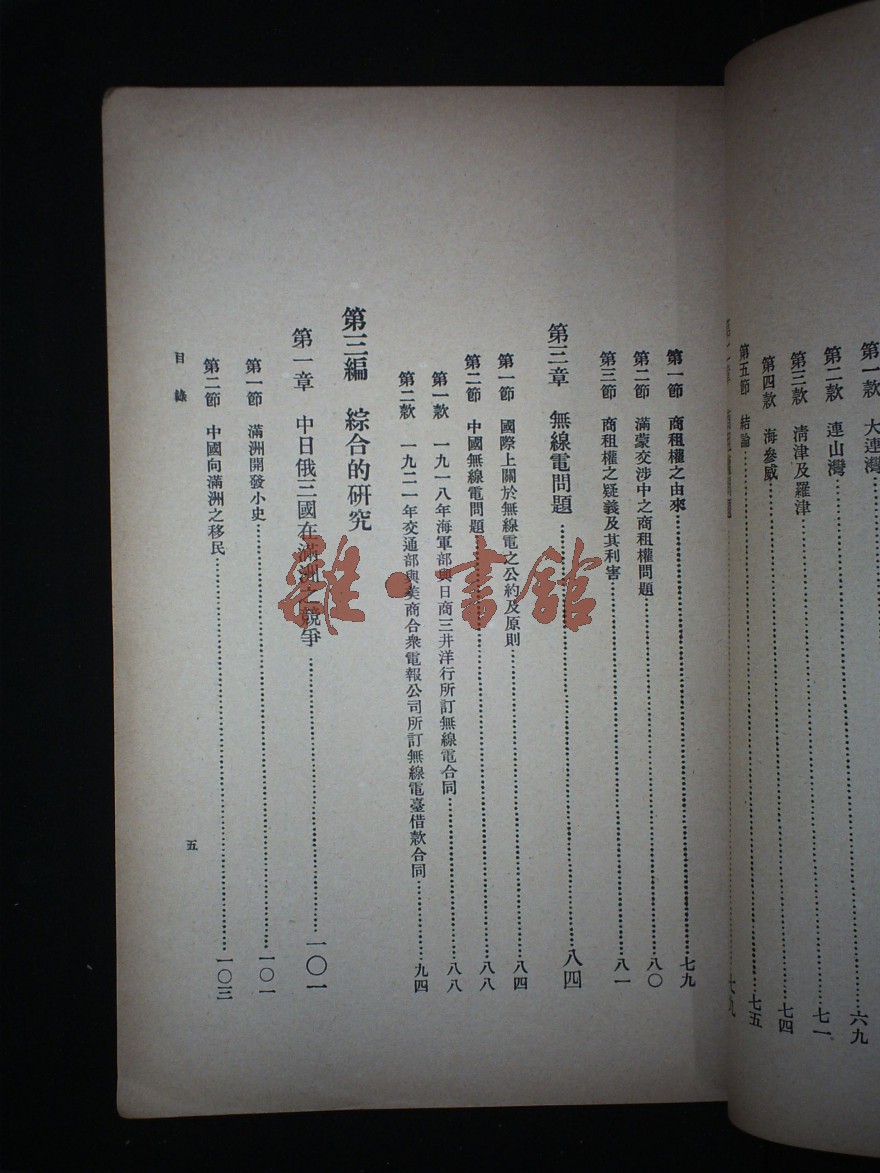 第一款　大連灣……六九
第二款　連山灣……七一
第三款　淸津及羅津……七四
第四款　海參威……七五
第五節　結論
第一節　商租權之由來……七九
第二節　滿蒙交涉中之商租權問題……八〇
第三節　商租權之疑義及其利害……八一
第三章　無線電問題……八四
第一節　國際上關於無線電之公約及原則……八四
第二節　中國無線電問題……八八
第一款　一九一八年海軍部與日商三井洋行所訂無線電合同……八八
第二款　一九二一年交通部與美商合衆電報公司所訂無線電臺借款合同……九四
第三編　綜合的硏究
第一章　中日俄三國在滿洲之競爭……一〇一
第一節　滿洲開發小史……一〇一
第二節　中國向滿洲之移民……一〇三
目錄
五
雜·書館